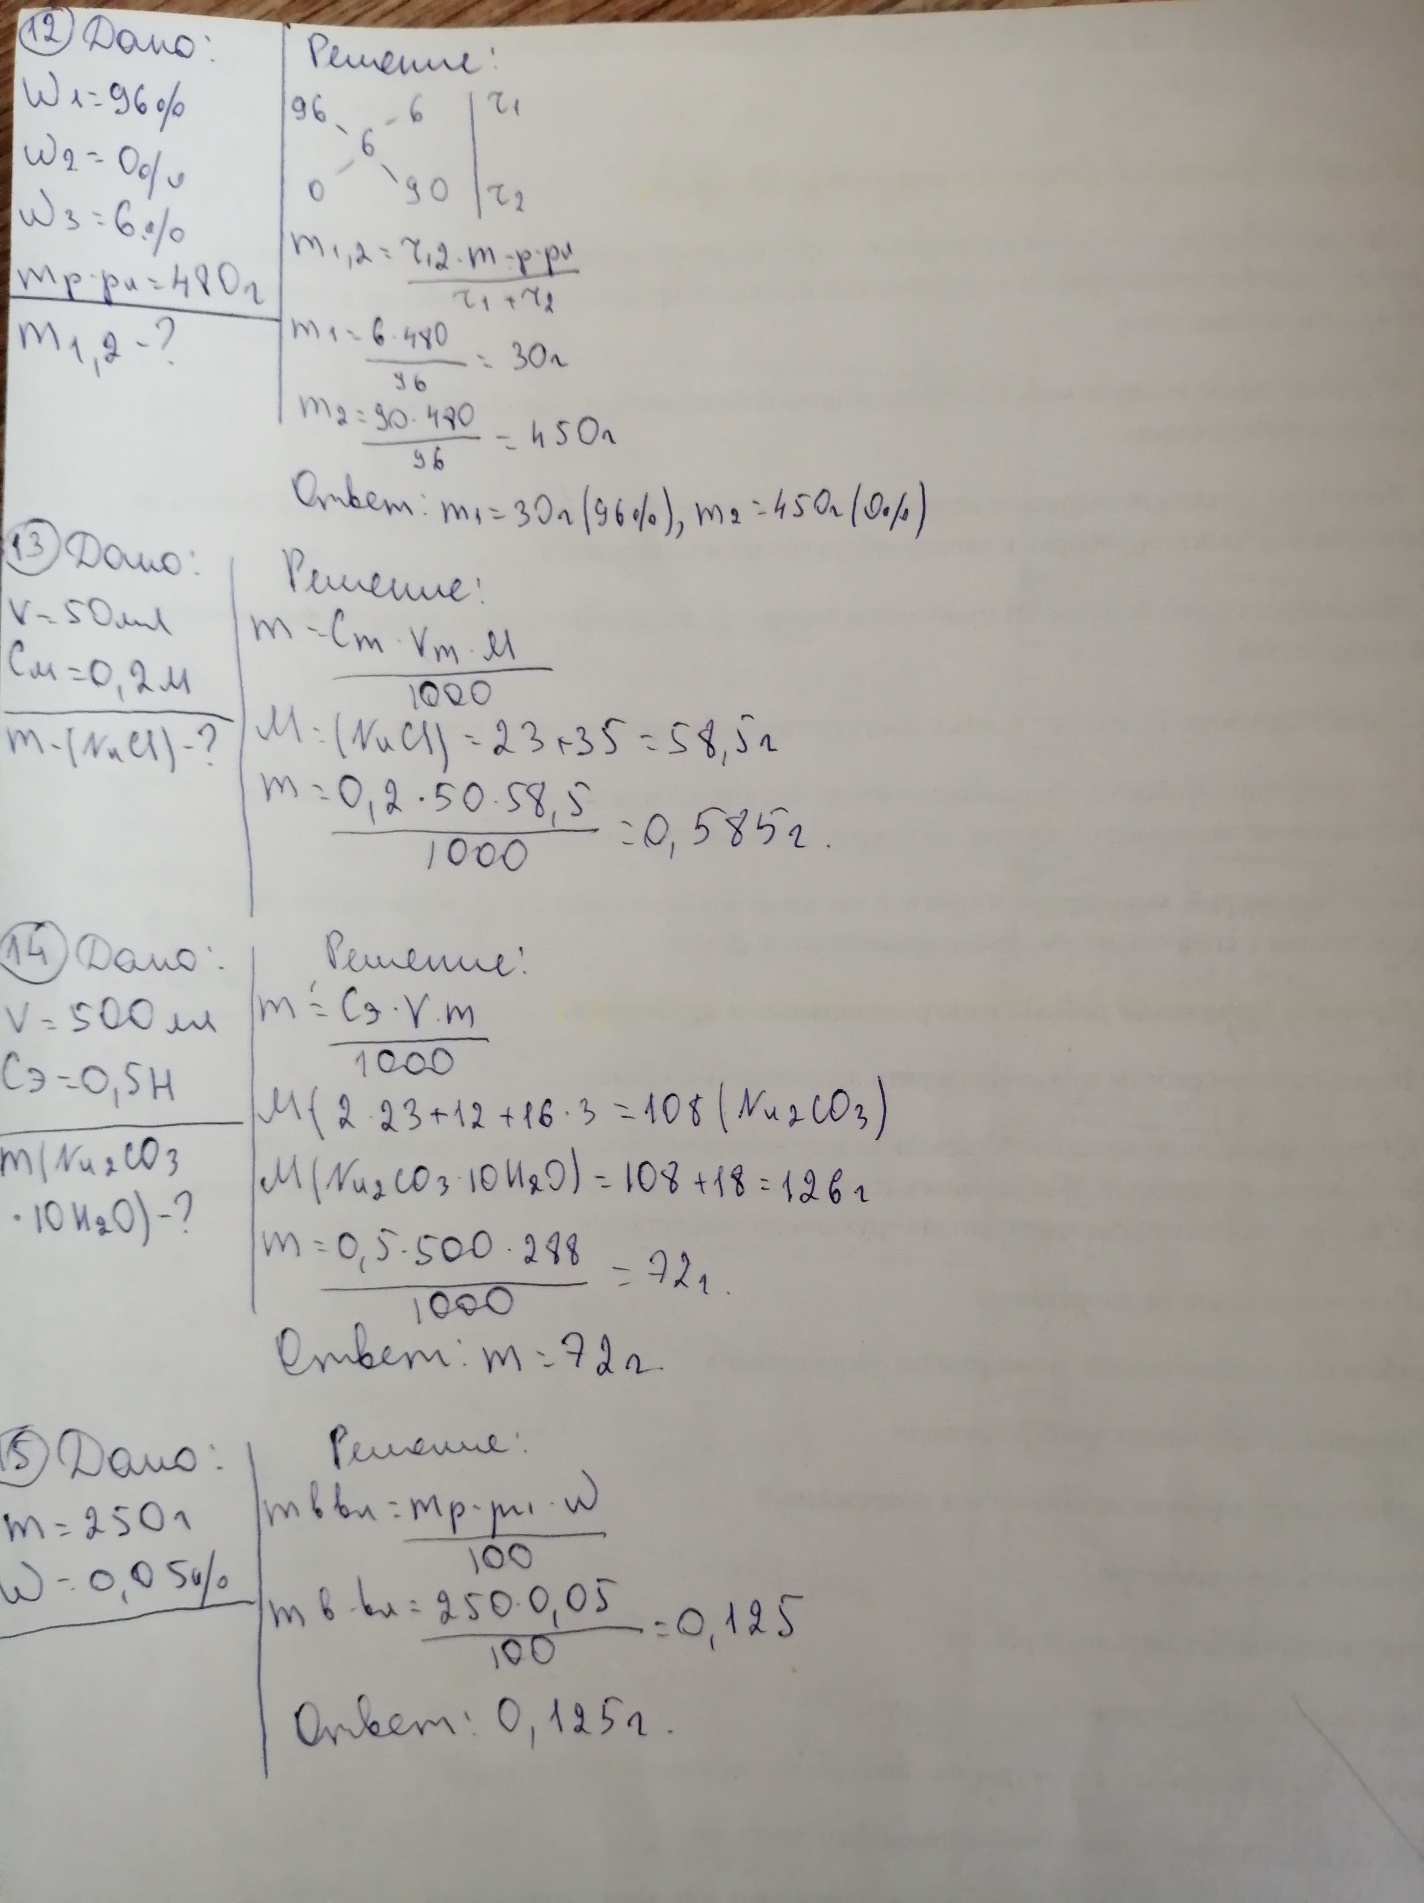 12 Дано:
W1=96%
W2=0%
W3=6%
mр-ра=480г
m1,2-?
Решение:
96 6 | r1
6
0 90 | r2
m1,2=r1,2·m р-ра
r1+r2
m1=6·480
96
=30г
m2=90·480
96
=450г
Ответ: m1=30г(96%), m2=450г(0%)
13 Дано:
V=50мл
См=0,2М
m-(NaCl)-?
Решение:
m=Cm·Vm·M
1000
M=(NaCl)=23+35=58,5г
m=0,2·50·58,5
1000
=0,585г.
14 Дано:
V=500мл
Сэ=0,5Н
m(Na2CO3
·10H2O)-?
Решение:
m=Сэ·V·m
1000
M(2·23+12+16·3=108(Na2CO3)
M(Na2CO3·10H2O)=108+18=126г
m=0,5·500·288
1000
=72г.
Ответ: m=72г
15 Дано:
m=250г
W=0,05%
Решение:
m в ва=mр-ра·W
100
m в-ва=250·0,05
100
=0,125
Ответ: 0,125г.